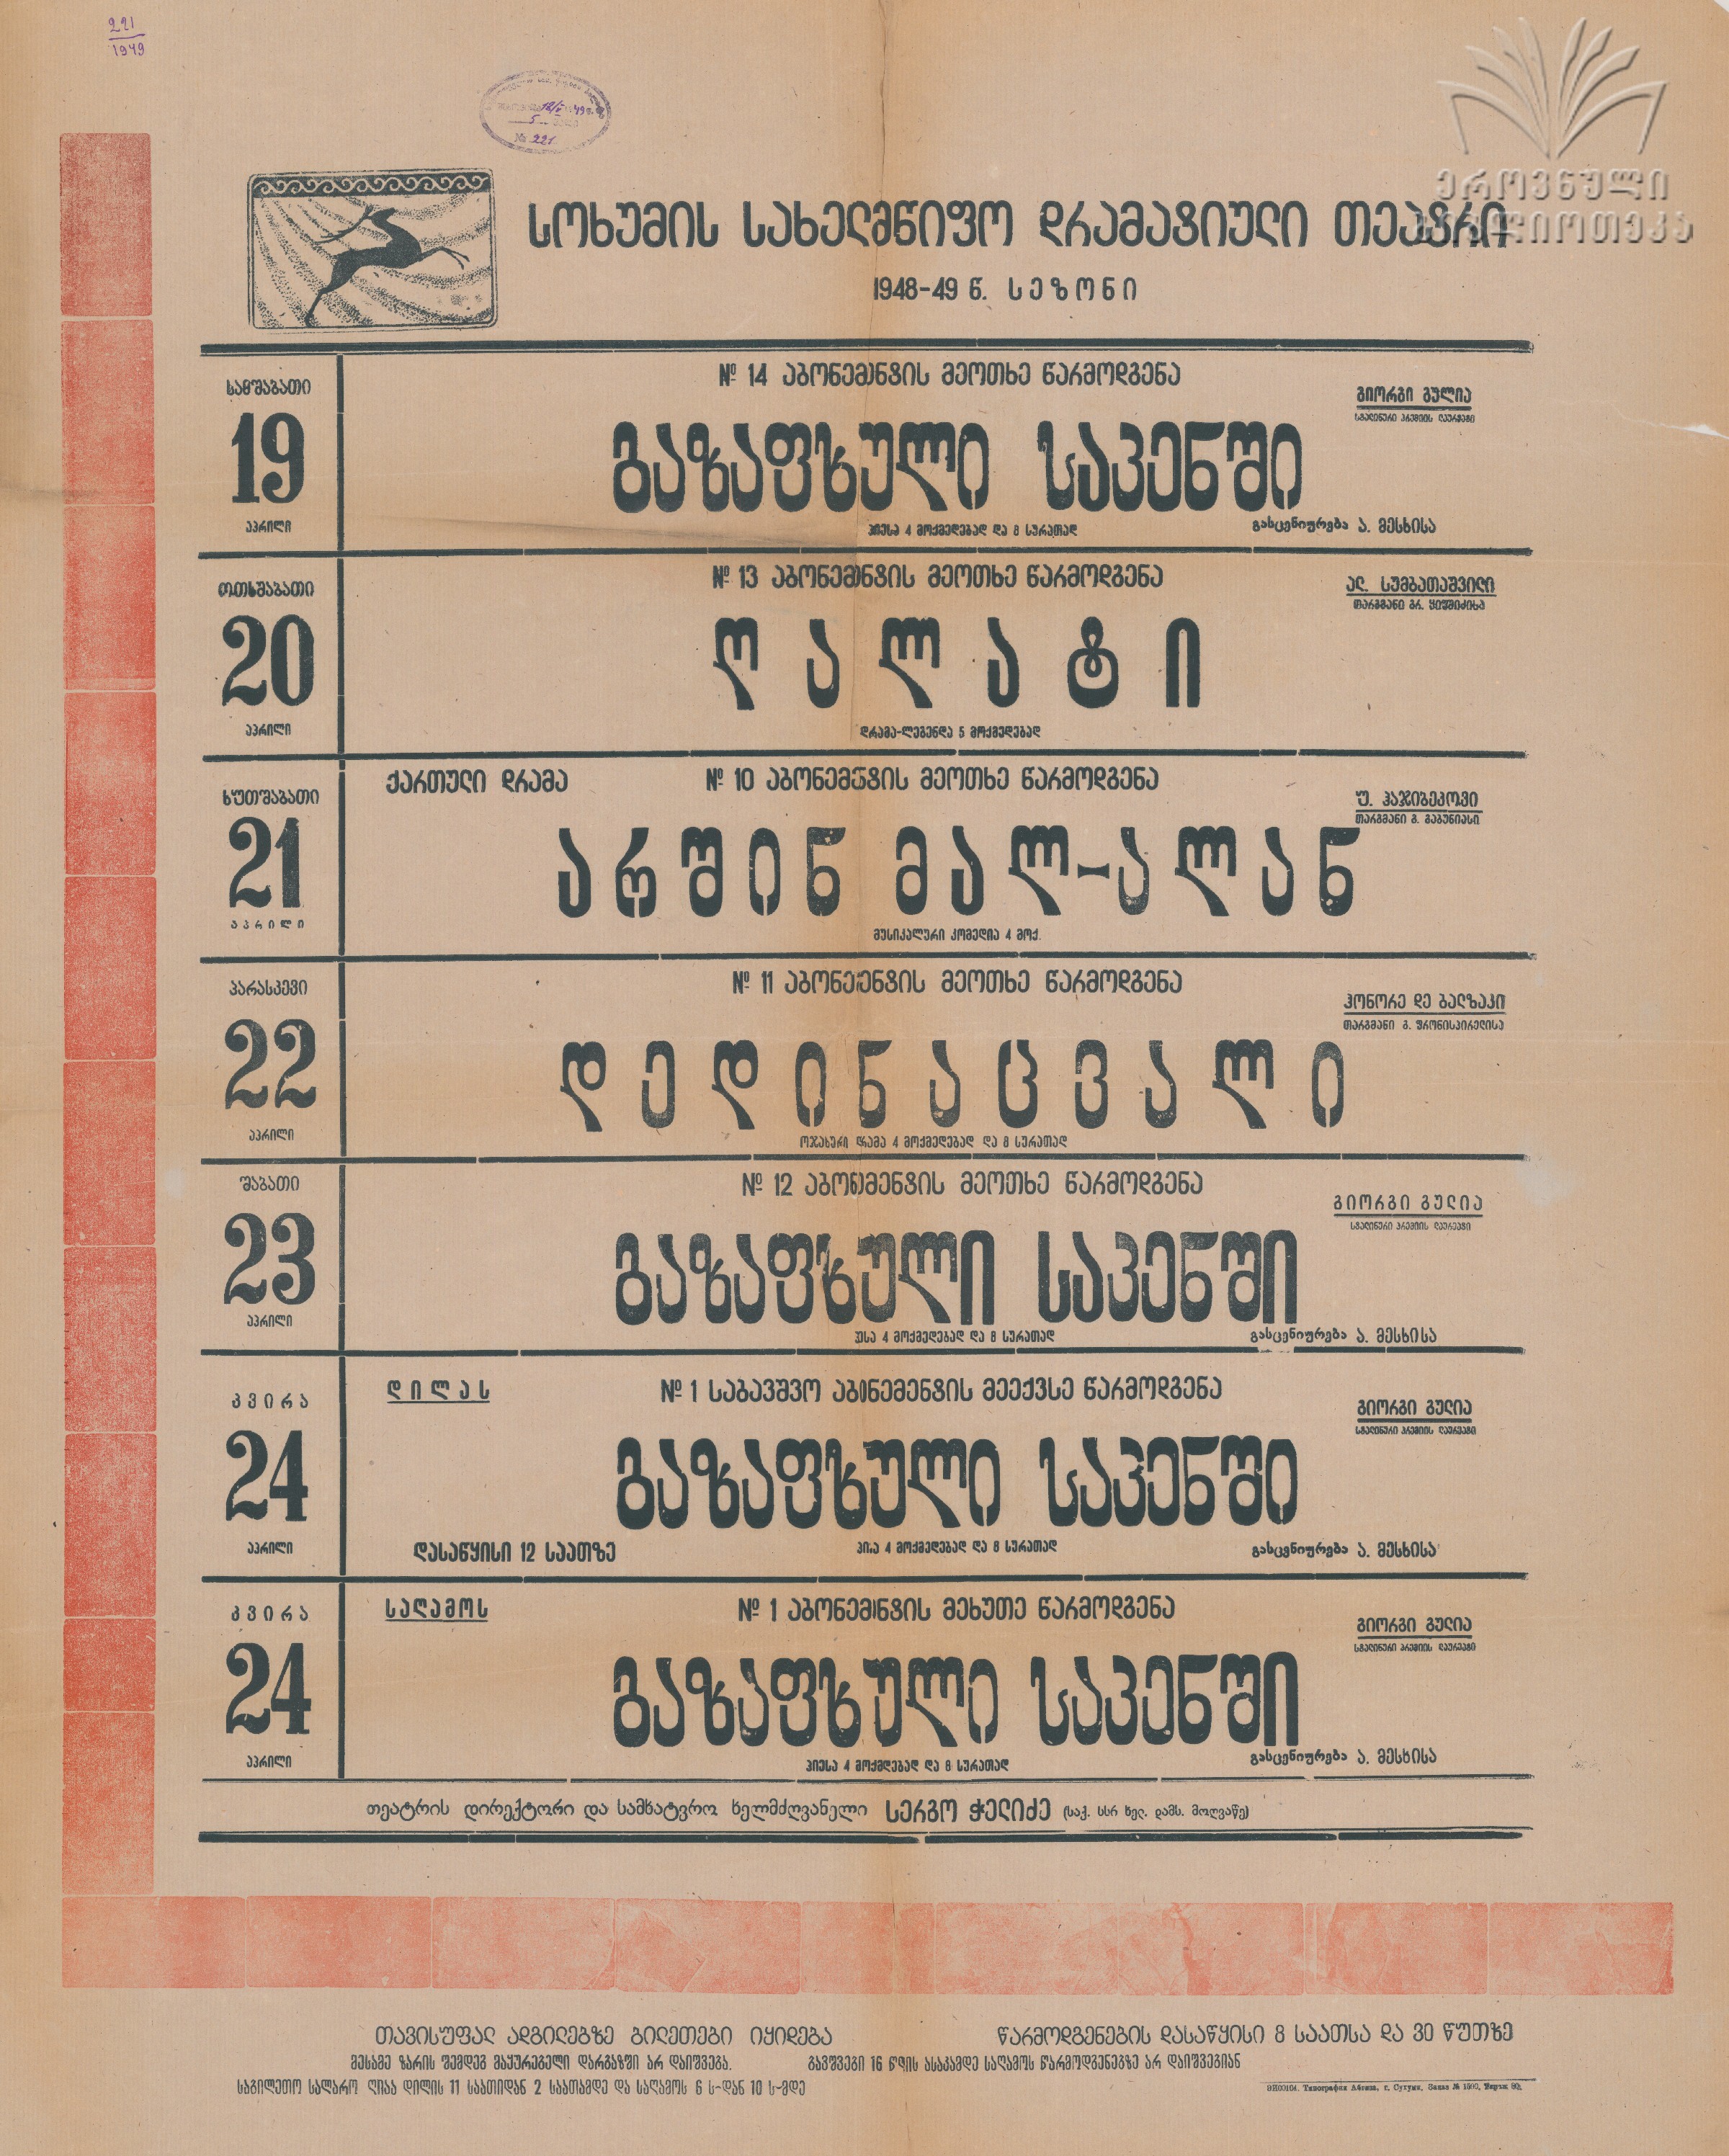 221
1949
№ 221
ეროვნული
ბიბლიოთეკა
სოხუმის სახელმწიფო დრამატიული თეატრი
1948-49 წ. სეზონი
სამშაბათი
19
აპრილი
№ 14 აბონემენტის მეოთხე წარმოდგენა
გიორგი გულია
სტალინური პრემიის ლაურეატი
გაზაფხული საკენში
პიესა 4 მოქმედებად და 8 სურათად
გასცენიურება ა. მესხისა
ოთხშაბათი
20
აპრილი
№ 13 აბონემენტის მეოთხე წარმოდგენა
ალ. სუმბათაშვილი
თარგმანი გრ. ყიფშიძისა
ღალატი
დრამა-ლეგენდა 5 მოქმედებად
ხუთშაბათი
21
აპრილი
ქართული დრამა
№ 10 აბონემენტის მეოთხე წარმოდგენა
უ. ჰაჯიბეკოვი
თარგმანი გ. გაბუნიასი
არშინ მალ-ალან
მუსიკალური კომედია 4 მოქ.
პარასკევი
22
აპრილი
№ 11 აბონემენტის მეოთხე წარმოდგენა
ჰონორე დე ბალზაკი
თარგმანი გ. ფრონისპირელისა
დედინაცვალი
ოჯახური დრამა 4 მოქმედებად და 8 სურათად
შაბათი
23
აპრილი
№ 12 აბონემენტის მეოთხე წარმოდგენა
გიორგი გულია
სტალინური პრემიის ლაურეატი
გაზაფხული საკენში
4 მოქმედებად და 8 სურათად
გასცენიურება ა. მესხისა
კვირა
24
აპრილი
დილას
№ 1 საბავშვო აბონემენტის მეექვსე წარმოდგენა
გიორგი გულია
სტალინური პრემიის ლაურეატი
გაზაფხული საკენში
დასაწყისი 12 საათზე
4 მოქმედებად და 8 სურათად
გასცენიურება ა. მესხისა
კვირა
24
აპრილი
საღამოს
№ 1 აბონემენტის მეხუთე წარმოდგენა
გიორგი გულია
სტალინური პრემიის ლაურეატი
გაზაფხული საკენში
პიესა 4 მოქმედებად და 8 სურათად
გასცენიურება ა. მესხისა
თეატრის დირექტორი და სამხატვრო ხელმძღვანელი სერგო ჭელიძე (საქ. სსრ ხელ. დამს. მოღვაწე)
თავისუფალ ადგილებზე ბილეთები იყიდება
წარმოდგენების დასაწყისი 8 საათსა და 30 წუთზე
მესამე ზარის შემდეგ მაყურებელი დარბაზში არ დაიშვება.
ბავშვები 16 წლის ასაკამდე საღამოს წარმოდგენებზე არ დაიშვებიან
საბილეთო სალარო ღიაა დილის 11 საათიდან 2 საათამდე და საღამოს 6 ს-დან 10 ს-მდე
ЭИ00104. Типография Абгиза, г. Сухуми, Заказ № 1590, Тираж 80.